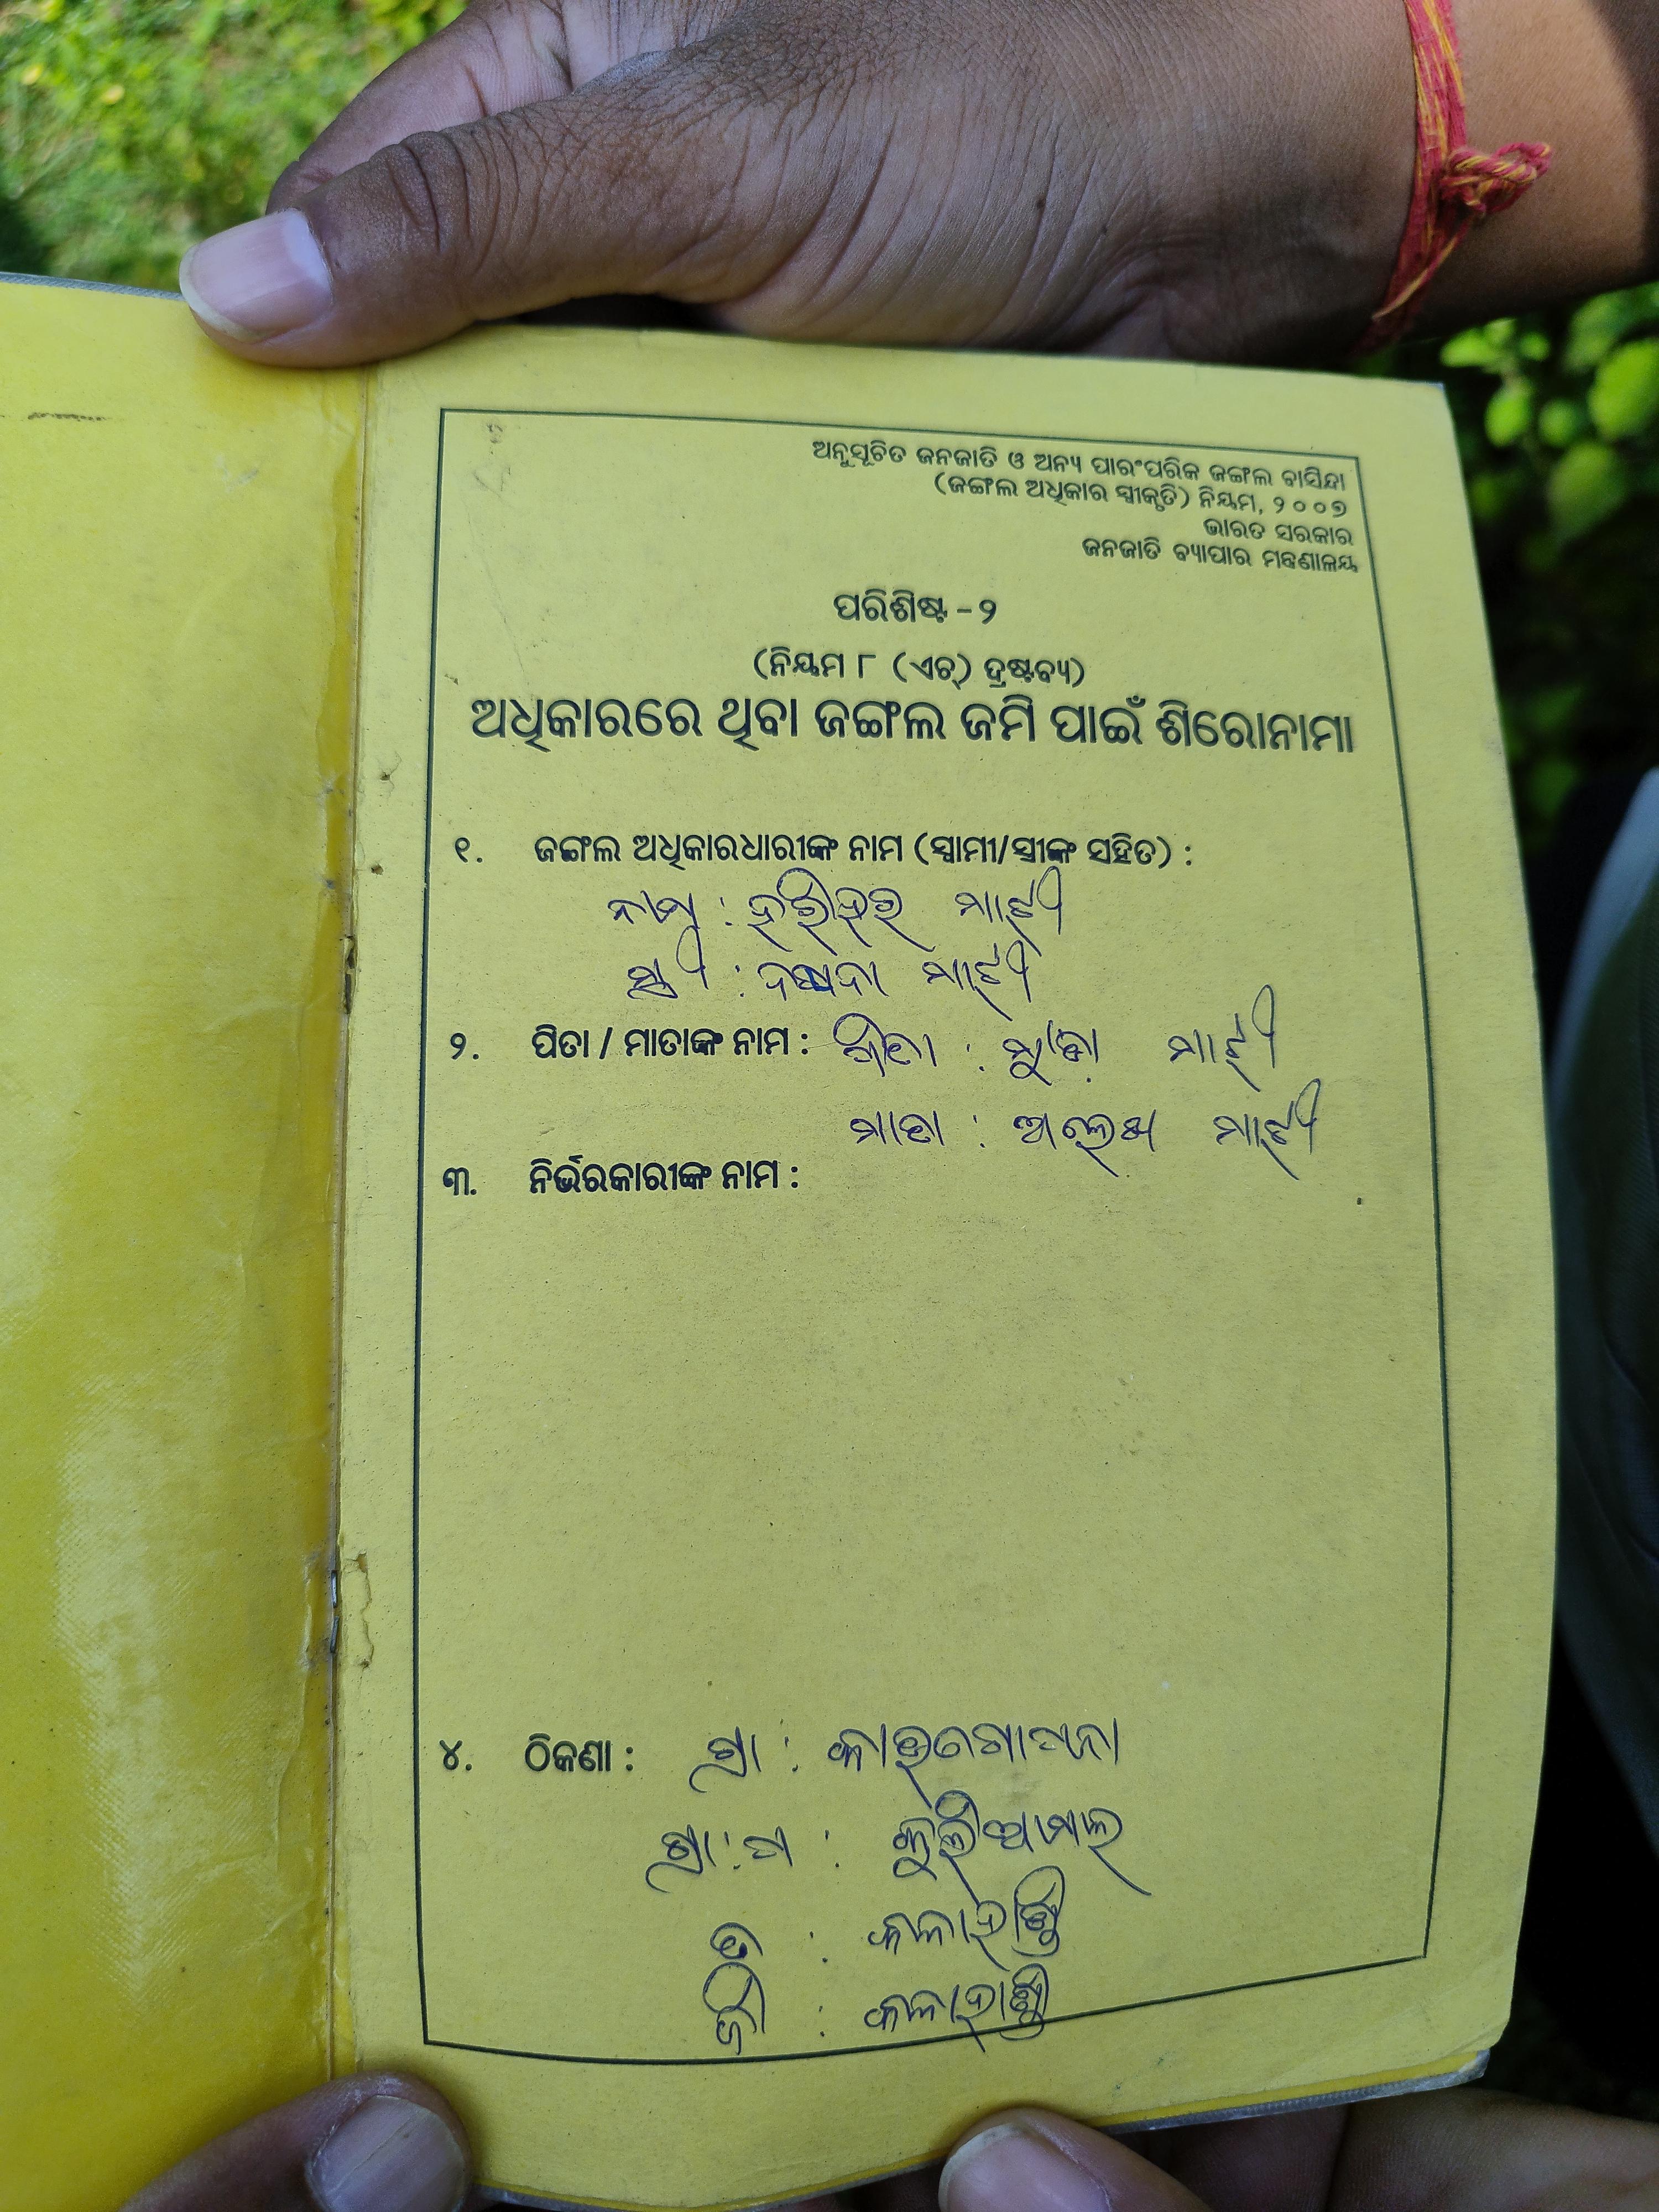 ଅନୁସୂଚିତ ଜନଜାତି ଓ ଅନ୍ୟ ପାରଂପରିକ ଜଙ୍ଗଲ ବାସିନ୍ଦା
(ଜଙ୍ଗଲ ଅଧିକାର ସ୍ୱୀକୃତି) ନିୟମ, ୨୦୦୭
ଭାରତ ସରକାର
ଜନଜାତି ବ୍ୟାପାର ମନ୍ତ୍ରଣାଳୟ
ପରିଶିଷ୍ଟ -୨
(ନିୟମ ୮ (ଏଚ୍) ଦ୍ରଷ୍ଟବ୍ୟ)
ଅଧିକାରରେ ଥିବା ଜଙ୍ଗଲ ଜମି ପାଇଁ ଶିରୋନାମା
୧. ଜଙ୍ଗଲ ଅଧିକାରଧାରୀଙ୍କ ନାମ (ସ୍ୱାମୀ/ସ୍ତ୍ରୀଙ୍କ ସହିତ) :
ନାମ : ହରିହର ମାଝୀ
ସ୍ତ୍ରୀ : ମାଝୀ
୨. ପିତା / ମାତାଙ୍କ ନାମ : ପିତା : ମାଝୀ
ମାତା : ଅଲେଖ ମାଝୀ
୩. ନିର୍ଭରକାରୀଙ୍କ ନାମ :
୪. ଠିକଣା : ଗ୍ରା :
ଗ୍ରା.ପ :
ତ : କଳାହାଣ୍ଡି
ଜି : କଳାହାଣ୍ଡି